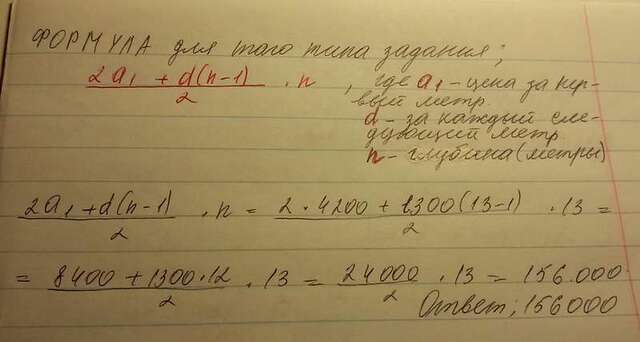 ФОРМУЛА для того типа задания;
(2a₁ + d(n-1))/2 · n , где a₁ - цена за пер-
вый метр
d - за каждый сле-
дующий метр
n - глубина (метры)
(2a₁ + d(n-1))/2 · n = (2 · 4200 + 1300(13-1))/2 · 13 =
= (8400 + 1300 · 12)/2 · 13 = 24000/2 · 13 = 156.000
Ответ; 156000